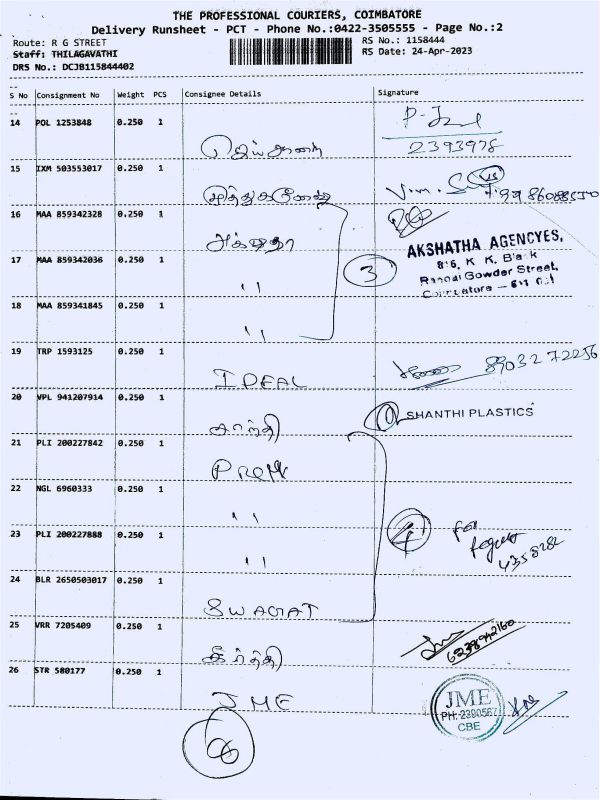 THE PROFESSIONAL COURIERS, COIMBATORE
Delivery Runsheet - PCT - Phone No.:0422-3505555 - Page No.:2
Route: R G STREET
RS No.: 1158444
Staff: THILAGAVATHI
RS Date: 24-Apr-2023
DRS No.: DCJB115844402
S No Consignment No Weight PCS Consignee Details Signature
14 POL 1253848 0.250 1
2393978
15 IXM 503553017 0.250 1
16 MAA 859342328 0.250 1
AKSHATHA AGENCYES,
17 MAA 859342036 0.250 1 " 3
18 MAA 859341845 0.250 1 "
19 TRP 1593125 0.250 1 IDEAL 89032 72256
20 VPL 941207914 0.250 1 சாந்தி SHANTHI PLASTICS
21 PLI 200227842 0.250 1 PREM
22 NGL 6960333 0.250 1 " 4
23 PLI 200227888 0.250 1 "
24 BLR 2650503017 0.250 1 SWAGAT
25 VRR 7205409 0.250 1 கீர்த்தி
26 STR 580177 0.250 1 JME
JME
PH: 2390567
CBE